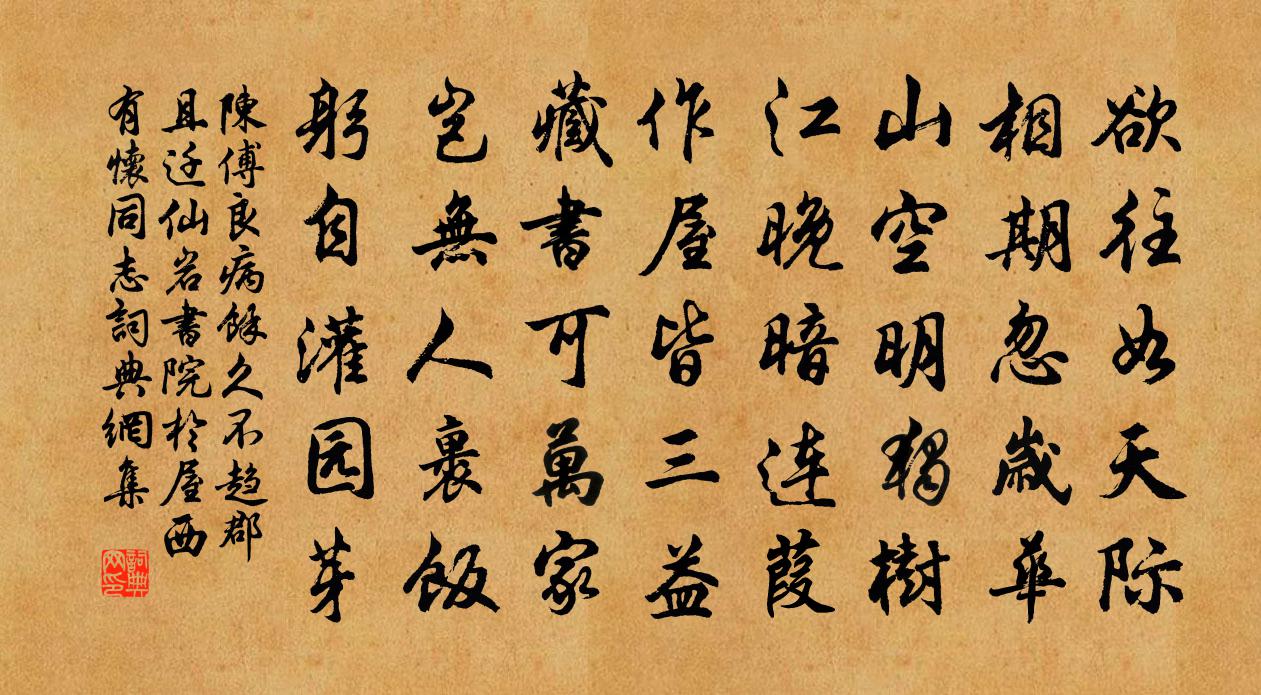 欲往如天际
相期忽歲華
山空明獨樹
江晚暗连葭
作屋皆三益
藏書可萬家
岂無人裹飯
躬自灌园芽
陳傅良病餘久不趋郡
且迁仙岩書院於屋西
有懷同志詞典網集
詞典
网印